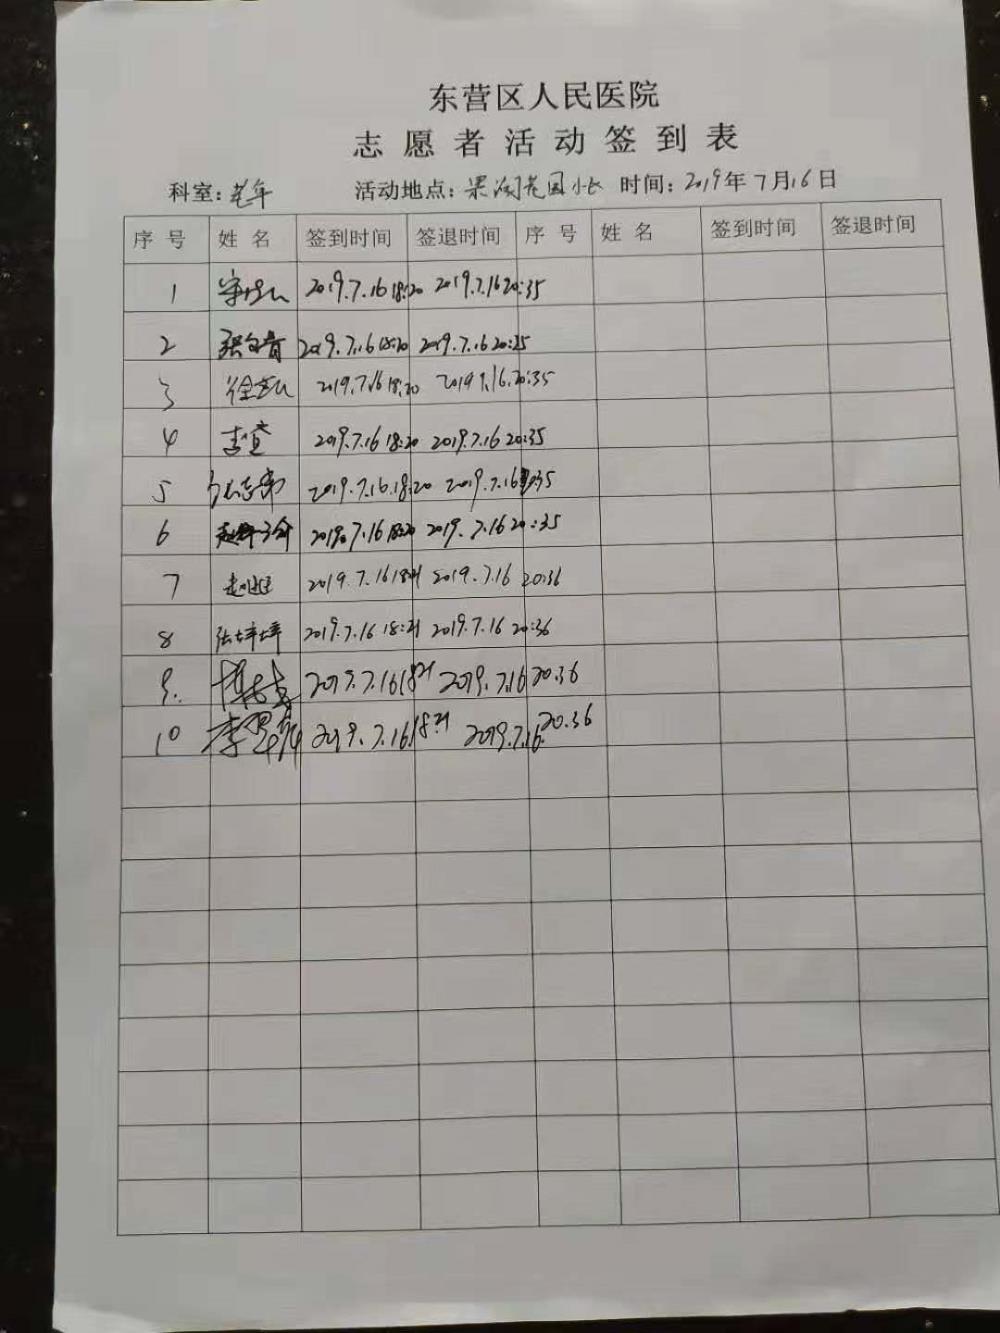 东营区人民医院
志愿者活动签到表
科室：老年 活动地点： 花园小区 时间：2019年7月16日
序号 姓名 签到时间 签退时间 序号 姓名 签到时间 签退时间
1 2019.7.16 18:20 2019.7.16 20:35
2 2019.7.16 18:20 2019.7.16 20:35
3 2019.7.16 18:20 2019.7.16.20:35
4 2019.7.16 18:20 2019.7.16 20:35
5 2019.7.16.18:20 2019.7.16 20:35
6 2019.7.16 18:20 2019.7.16 20:35
7 2019.7.16 18:21 2019.7.16 20:36
8 张坪坪 2019.7.16 18:21 2019.7.16 20:36
9. 2019.7.16 18:21 2019.7.16 20.36
10 2019.7.16 18:21 2019.7.16 20.36